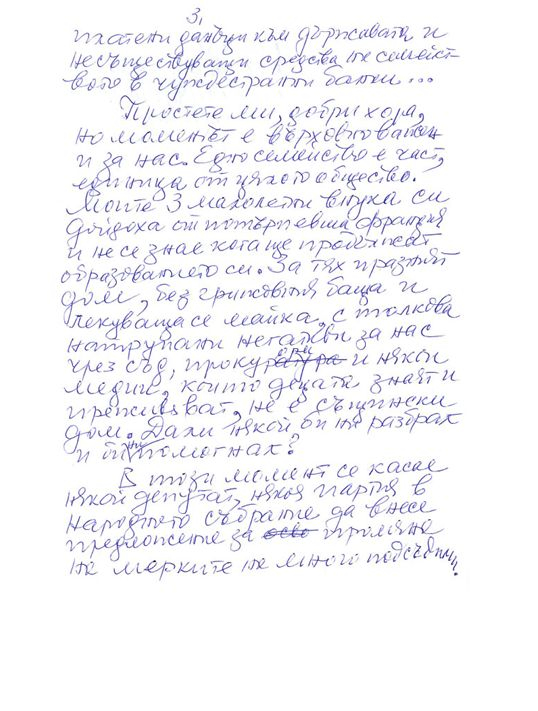 3.
платени данъци към държавата и
несъществуващи средства на семейст-
вото в чуждестранни банки...
Простете ми, добри хора,
но моментът е върховно важен
и за нас. Едно семейство е част,
единица от цялото общество.
Моите 3 малолетни внука си
дойдоха от потърпевша Франция
и не се знае кога ще продължат
образованието си. За тях празният
дом, без грижовния баща и
лекуваща се майка, с толкова
натрупани негативи за нас
чрез съд, прокурори и някои
медии, които децата знаят и
преживяват, не е същински
дом. Дали някой би ни разбрал
и би ни помогнал?
В този момент се касае
някой депутат, някоя партия в
Народното събрание да внесе
предложение за промяна
на мерките на много подсъдими.